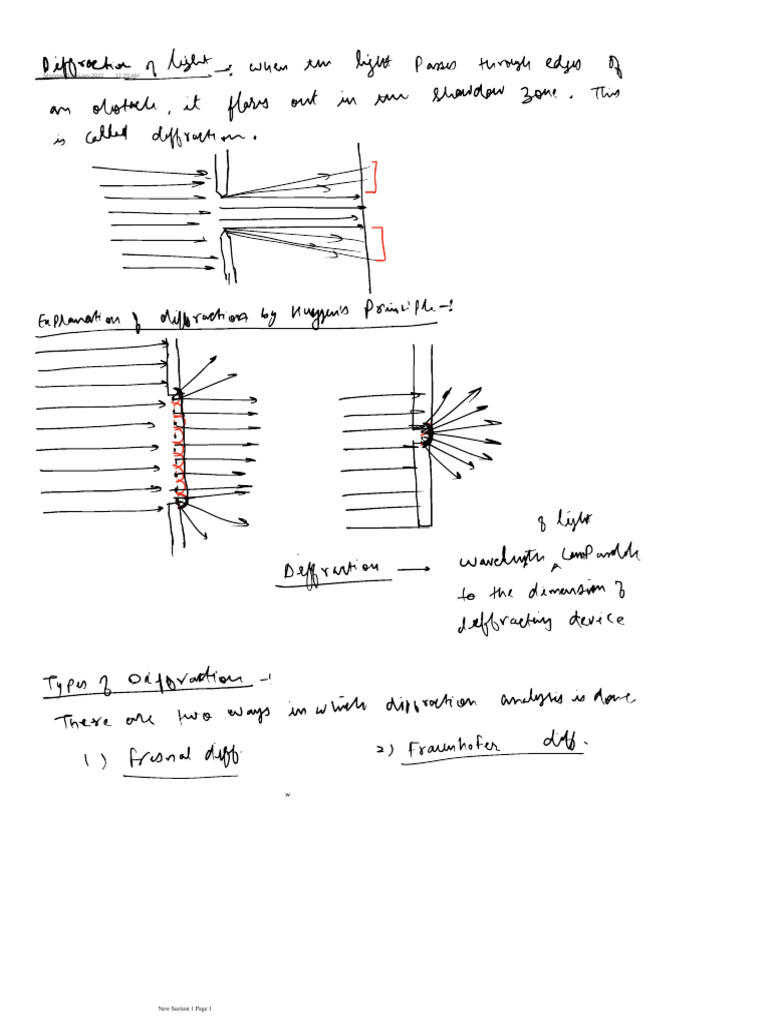 Diffraction of light -: when the light Passes through edges of
an obstacle, it flares out in the shawdow zone. This
is called diffraction.
Explanation of diffraction by Huygen's Principle -:
of light
Diffraction → wavelength ^ Comparable
to the dimension of
diffracting device
Types of Diffraction -:
There are two ways in which diffraction analysis is done
1) Fresnal diff. 2) Fraunhofer diff.
w
New Section 1 Page 1